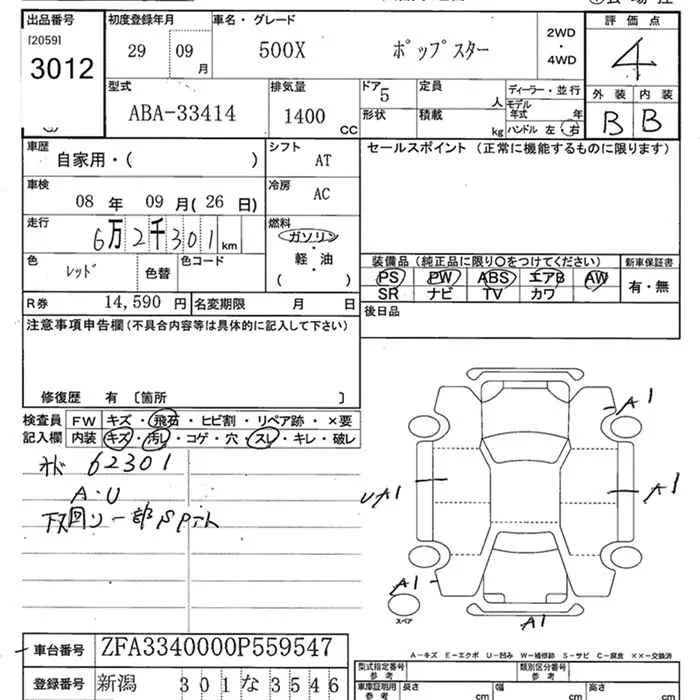 出品番号 初度登録年月 車名・グレード 2WD・4WD 評価点
[2059]
3012 29 09月 500X ポップスター 4
型式 排気量 ドア 定員 人 ディーラー・並行 外装 内装
ABA-33414 1400 CC 5 形状 積載 kg モデル年式 年 ハンドル 左・右 B B
車歴 シフト セールスポイント(正常に機能するものに限ります)
自家用・( ) AT
車検 冷房
08 年 09 月(26 日) AC
走行 燃料
6万2千301km ガソリン・軽・油
( )
色 レッド 色替 色コード
装備品(純正品に限り○をつけてください) 新車保証書
PS PW ABS エアB AW 有・無
SR ナビ TV カワ
R券 14,590 円 名変期限 月 日
後日品
注意事項申告欄(不具合内容等は具体的に記入して下さい)
修復歴 有 〔箇所 〕
検査員 FW キズ・飛石・ヒビ割・リペア跡・×要
記入欄 内装 キズ・汚し・コゲ・穴・スレ・キレ・破レ
62301
A・U
A1
UA1
A1
A1
A1
スペア
A-キズ E-エクボ U-凹み W-補修跡 S-サビ C-腐食 ××-交換済
車台番号 ZFA3340000P559547
登録番号 新潟 301 な 3546
型式指定番号 参考 類別区分番号 参考
車庫証明用 参考 長さ cm 幅 cm 高さ cm